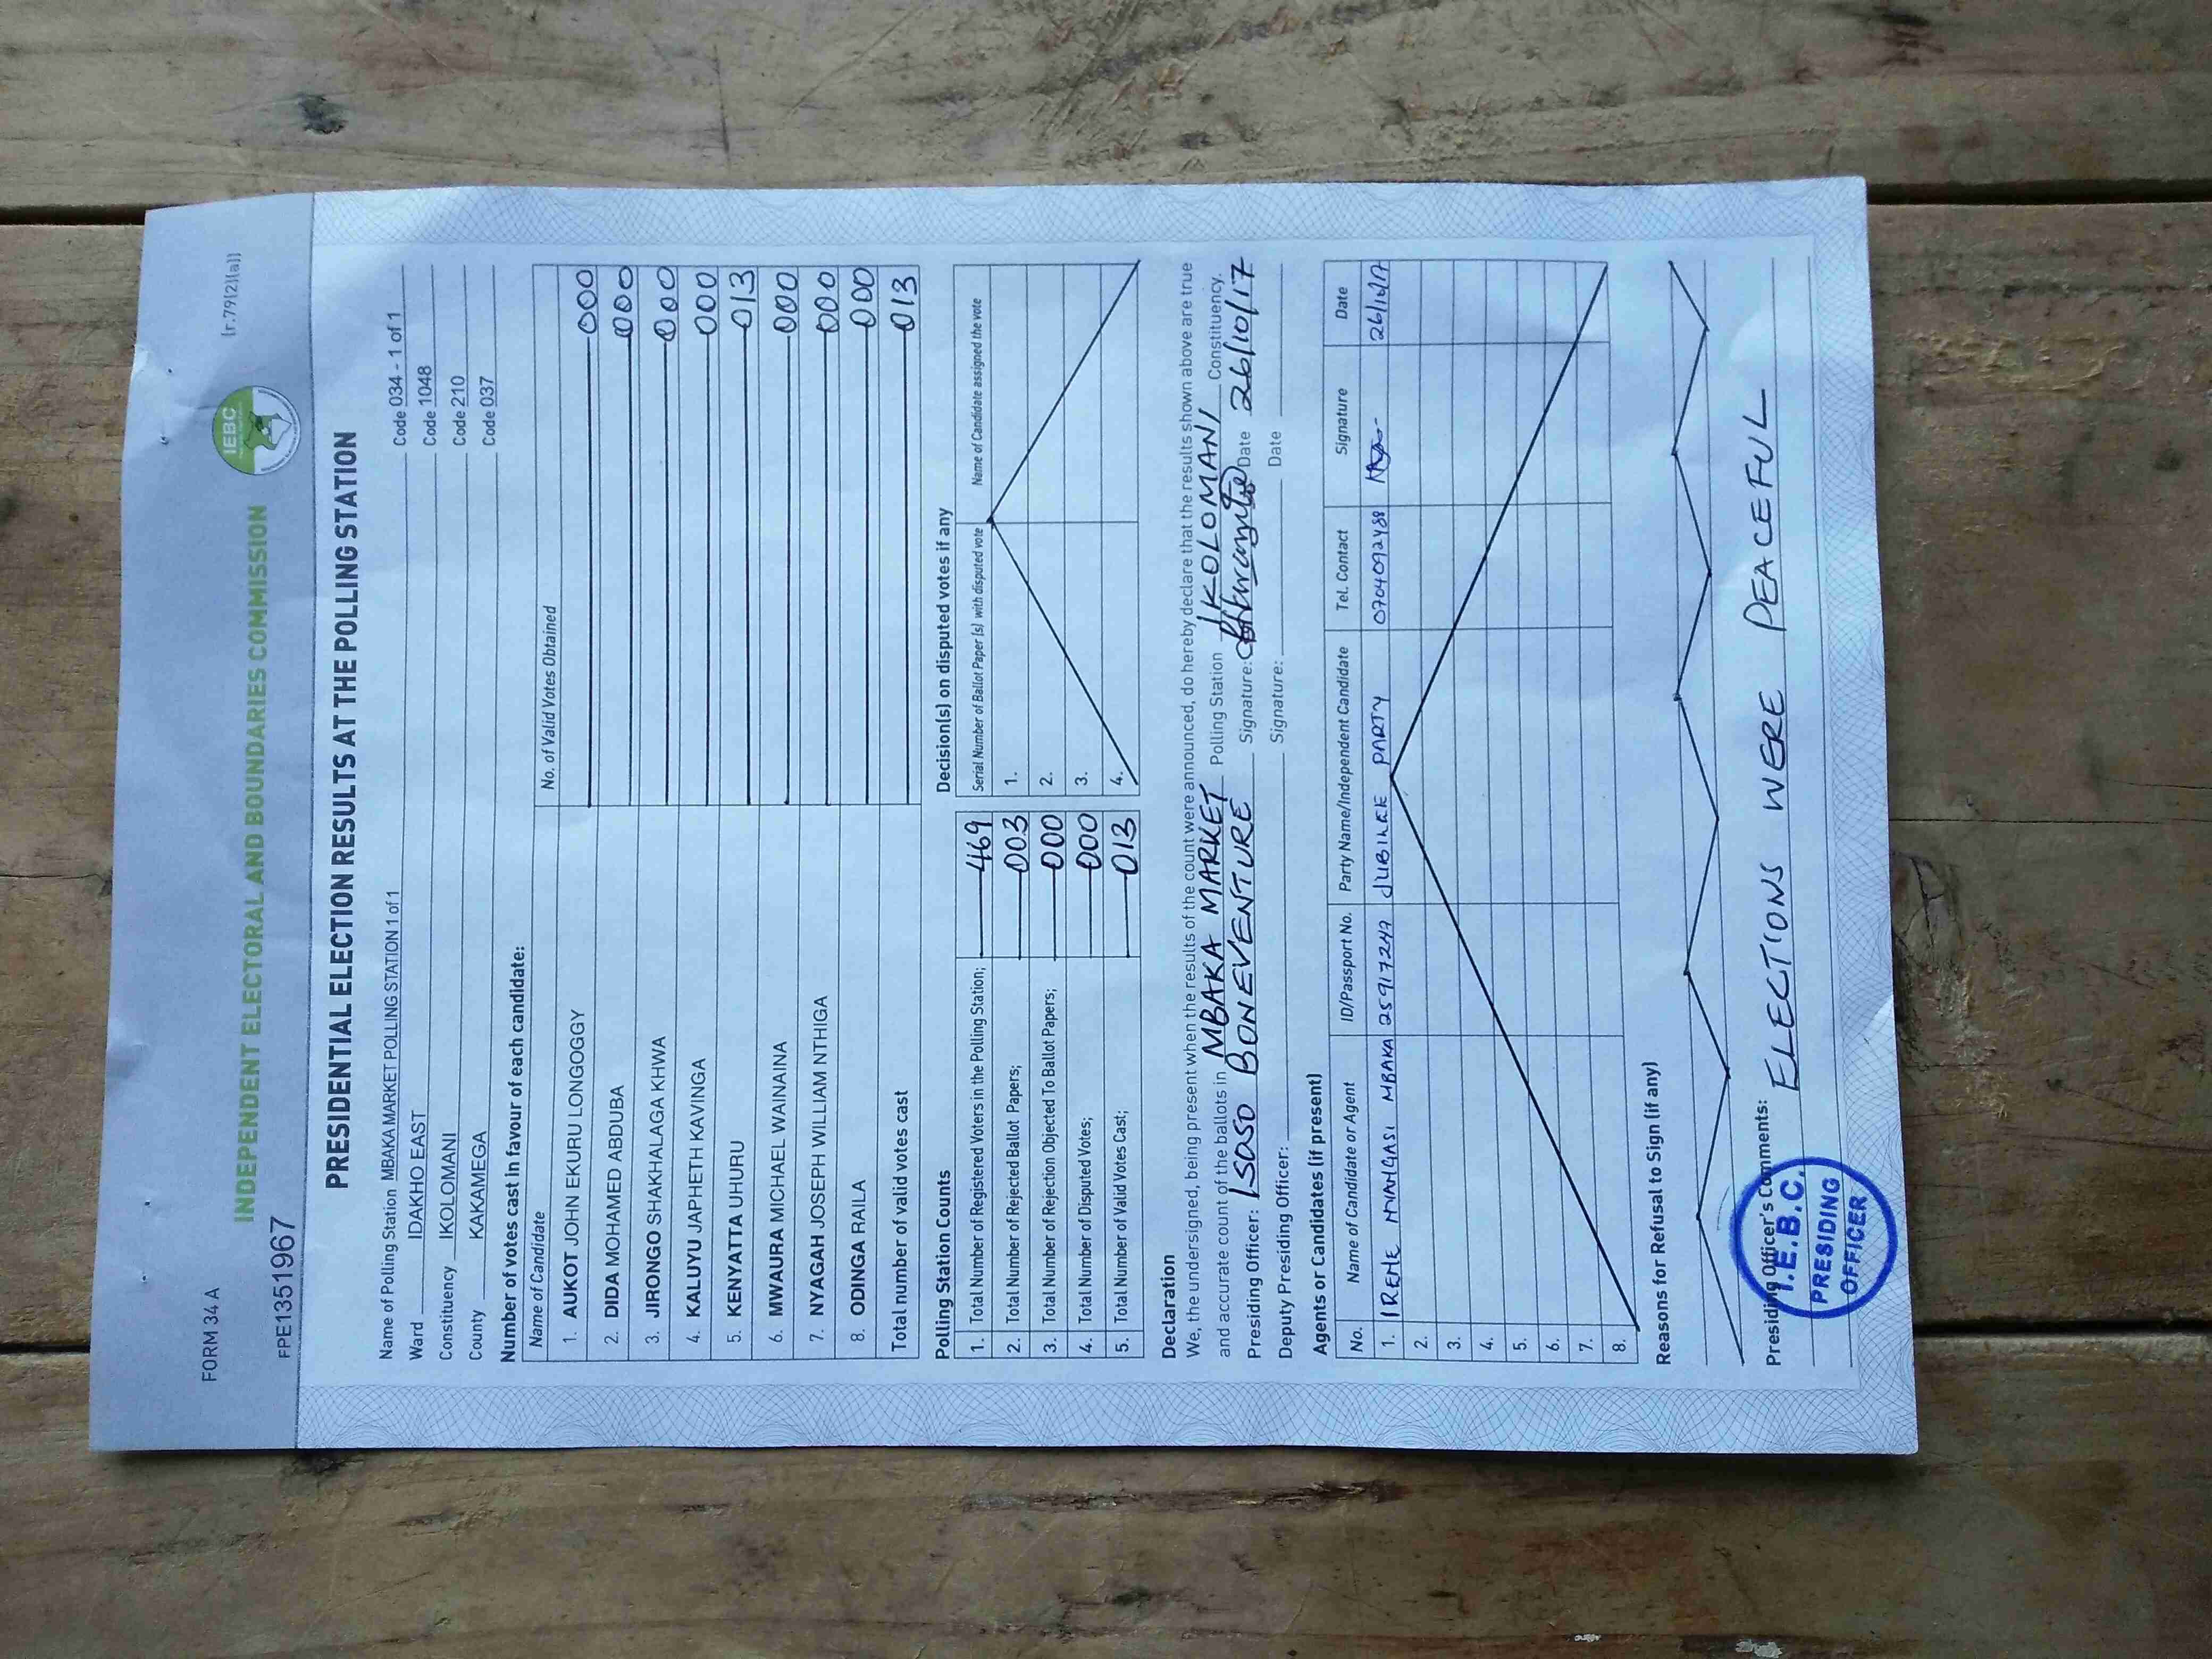 FORM 34 A
(r.79(2)(a))
INDEPENDENT ELECTORAL AND BOUNDARIES COMMISSION
IEBC
FPE1351967
PRESIDENTIAL ELECTION RESULTS AT THE POLLING STATION
Name of Polling Station MBAKA MARKET POLLING STATION 1 of 1 Code 034 - 1 of 1
Ward IDAKHO EAST Code 1048
Constituency IKOLOMANI Code 210
County KAKAMEGA Code 037
Number of votes cast in favour of each candidate:
Name of Candidate No. of Valid Votes Obtained
1. AUKOT JOHN EKURU LONGOGGY 000
2. DIDA MOHAMED ABDUBA 000
3. JIRONGO SHAKHALAGA KHWA 000
4. KALUYU JAPHETH KAVINGA 000
5. KENYATTA UHURU 013
6. MWAURA MICHAEL WAINAINA 000
7. NYAGAH JOSEPH WILLIAM NTHIGA 000
8. ODINGA RAILA 000
Total number of valid votes cast 013
Polling Station Counts
1. Total Number of Registered Voters in the Polling Station; 469
2. Total Number of Rejected Ballot Papers; 003
3. Total Number of Rejection Objected To Ballot Papers; 000
4. Total Number of Disputed Votes; 000
5. Total Number of Valid Votes Cast; 013
Decision(s) on disputed votes if any
Serial Number of Ballot Paper (s) with disputed vote Name of Candidate assigned the vote
1.
2.
3.
4.
Declaration
We, the undersigned, being present when the results of the count were announced, do hereby declare that the results shown above are true
and accurate count of the ballots in MBAKA MARKET Polling Station IKOLOMANI Constituency.
Presiding Officer: ISASO BONEVENTURE Signature: Date 26/10/17
Deputy Presiding Officer: Signature: Date
Agents or Candidates (if present)
No. Name of Candidate or Agent ID/Passport No. Party Name/Independent Candidate Tel. Contact Signature Date
1. IRENE MBAKA 25917247 JUBILEE PARTY 0704092488
2.
3.
4.
5.
6.
7.
8.
Reasons for Refusal to Sign (if any)
Presiding Officer's Comments:
ELECTIONS WERE PEACEFUL
I.E.B.C.
PRESIDING
OFFICER